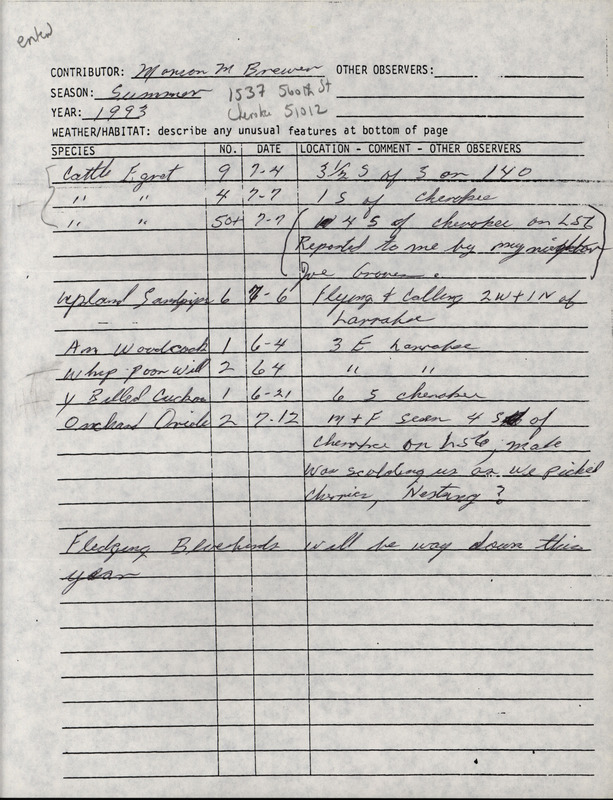 entd
CONTRIBUTOR: Marion M Brewer OTHER OBSERVERS:
SEASON: Summer 1537 560th St
YEAR: 1993 Cherokee 51012
WEATHER/HABITAT: describe any unusual features at bottom of page
SPECIES NO. DATE LOCATION - COMMENT - OTHER OBSERVERS
Cattle Egret 9 7-4 3 1/2 S of 3 on 140
" " 4 7-7 1 S of Cherokee
" " 50+ 7-7 4 S of Cherokee on L56
Reported to me by my neighbor
Joe Graves.
Upland Sandpiper 6 7-6 Flying & Calling 2W + 1N of
Larrabee
Am Woodcock 1 6-4 3 E Larrabee
Whip Poor Will 2 6 4 " "
Y Billed Cuckoo 1 6-21 6 S Cherokee
Orchard Oriole 2 7-12 M + F seen 4 S of
Cherokee on L56, male
was scolding us as we picked
Cherries, Nesting?
Fledging Bluebirds will be way down this
year